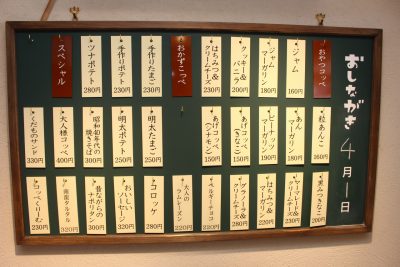 おしながき
4月1日
おやつコッペ
ジャム
160円
ジャム
マーガリン
180円
クッキー&
バニラ
200円
はちみつ&
クリームチーズ
230円
おかずこっぺ
手作りたまご
230円
手作りポテト
230円
ツナポテト
280円
スペシャル
粒あんこ
160円
あん
マーガリン
180円
ピーナッツ
マーガリン
190円
あげコッペ
(きなこ)
150円
あげコッペ
(シナモン)
150円
明太たまご
250円
明太ポテト
250円
昭和40年代の
焼きそば
300円
大人様コッペ
400円
くだものサンド
330円
黒みつきなこ
200円
マーマレード&
クリームチーズ
230円
はちみつ&
マーガリン
220円
グラノーラ&
クリームチーズ
280円
ベルギーチョコ
220円
大人の
ラムレーズン
220円
コロッケ
280円
おいしい
ソーセージ
320円
昔ながらの
ナポリタン
300円
南蛮タルタル
320円
コッペくりーむ
230円